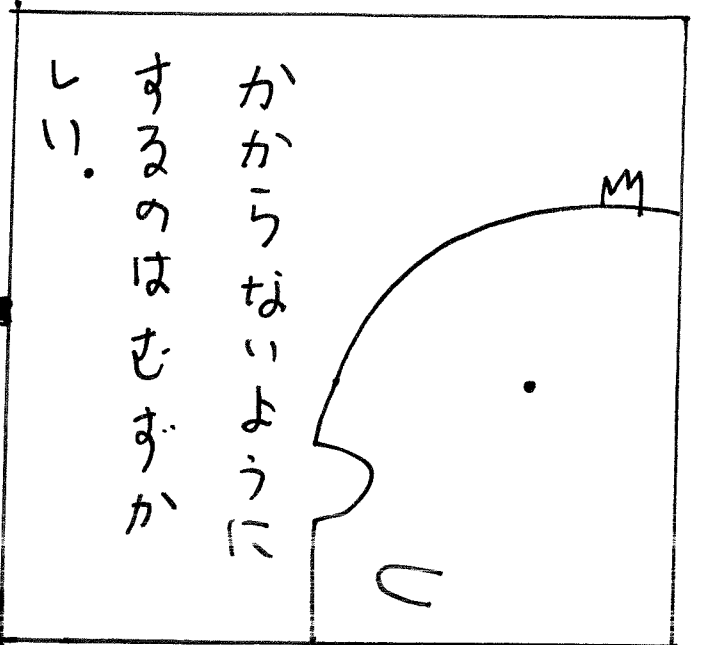 かからないように
するのはむずか
しい.